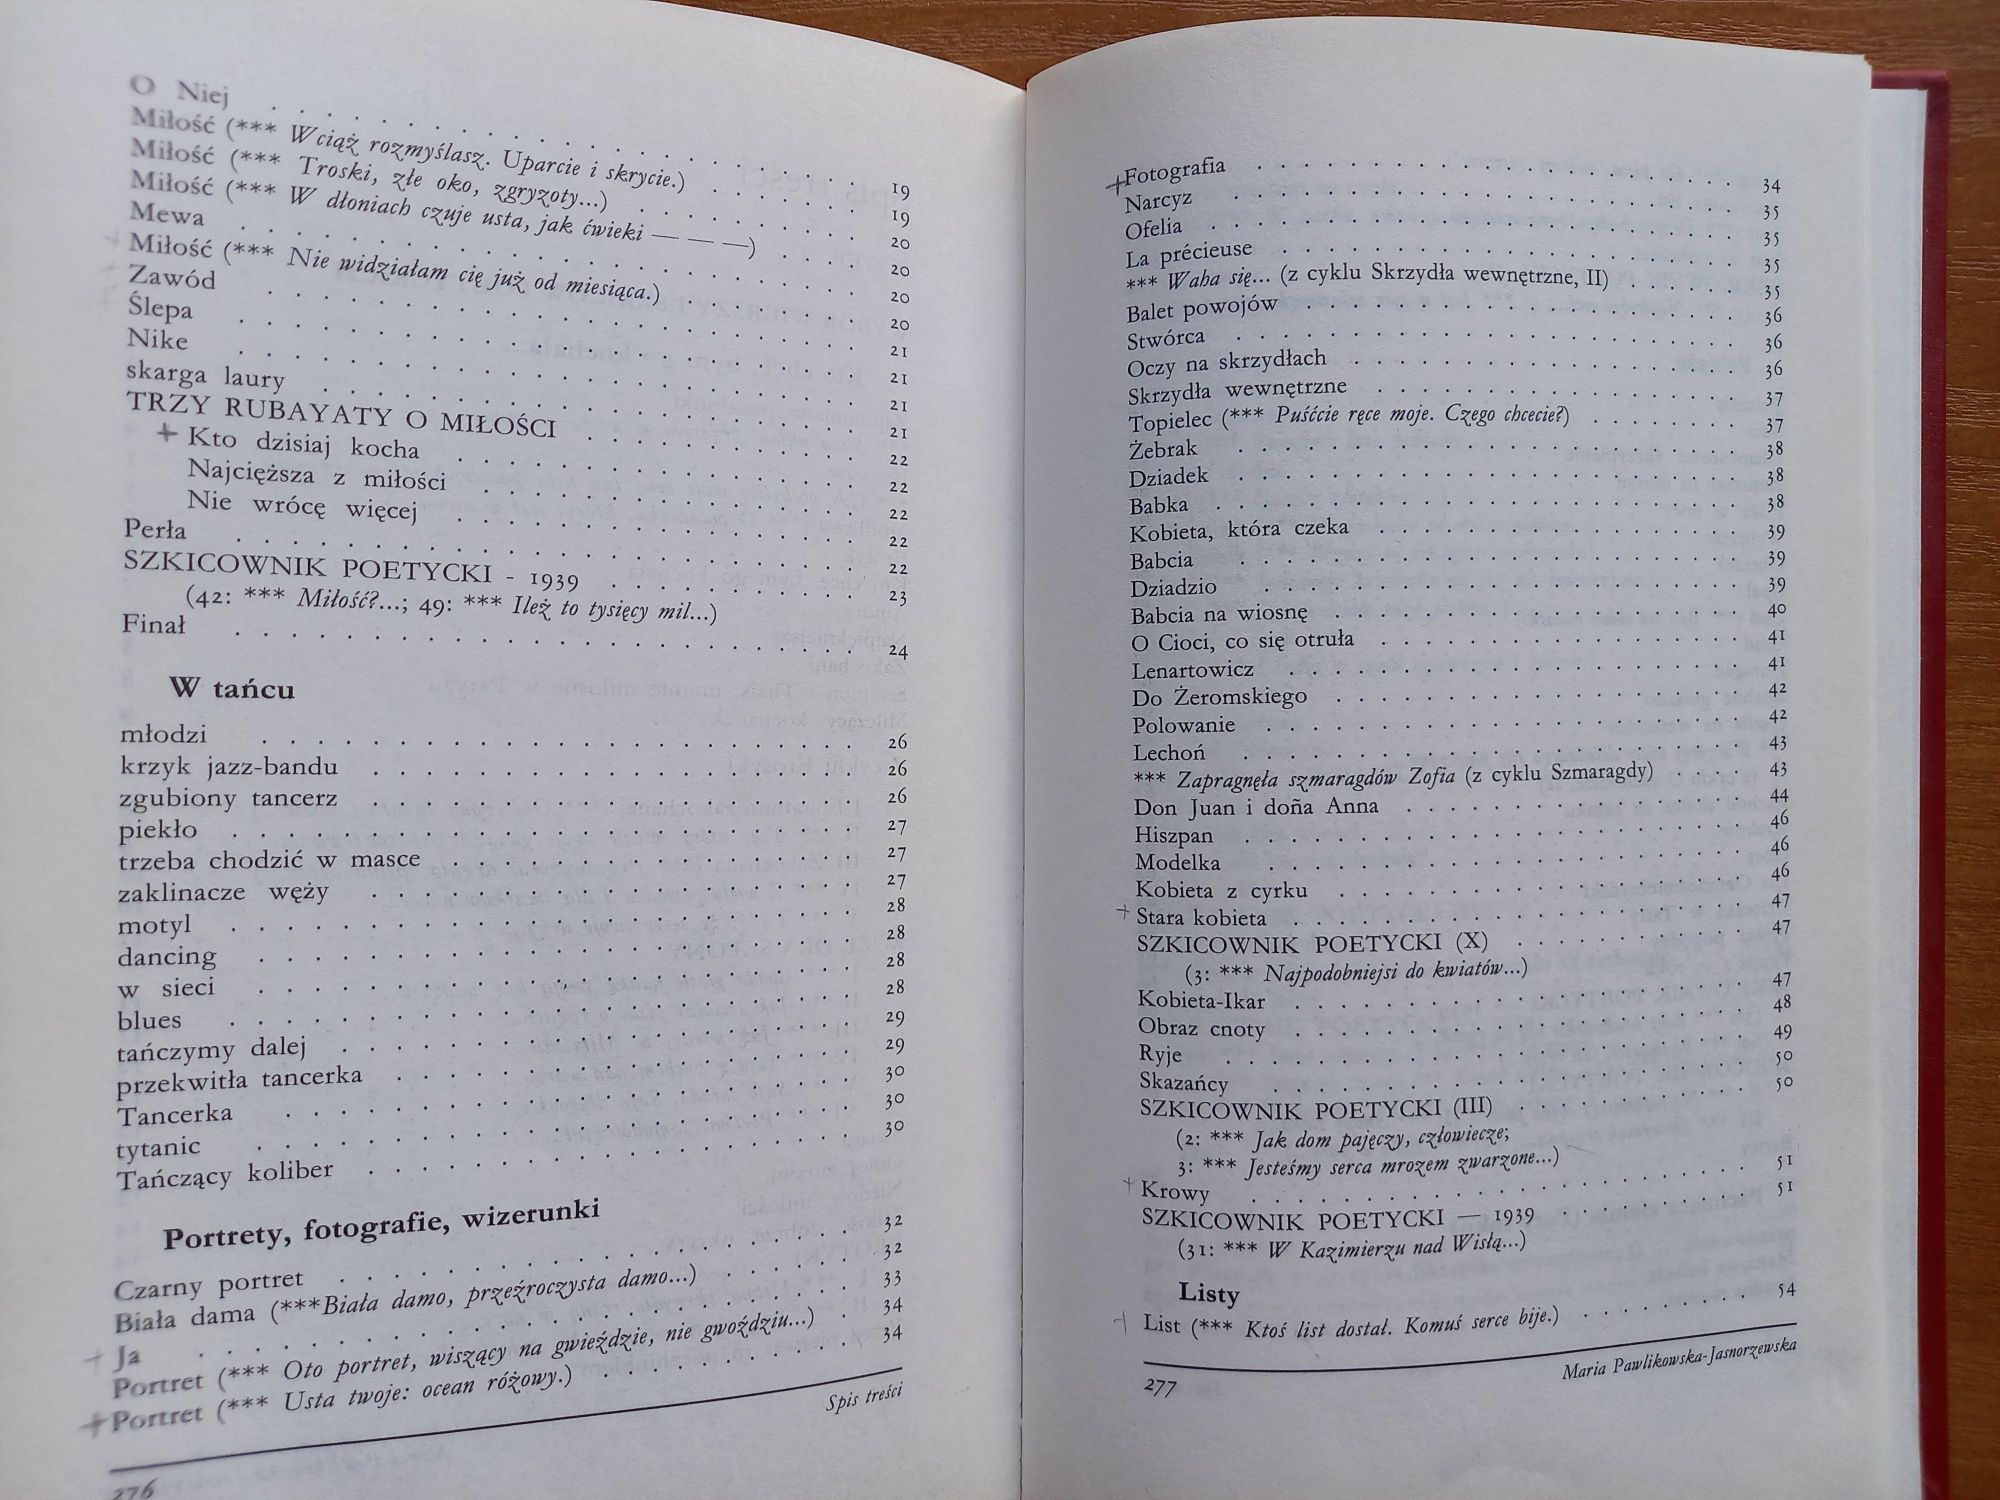 O Niej . . . 19
Miłość (*** Wciąż rozmyślasz. Uparcie i skrycie.) . . . 19
Miłość (*** Troski, złe oko, zgryzoty...) . . . 20
Miłość (*** W dłoniach czuje usta, jak ćwieki — — —) . . . 20
Mewa . . . 20
Miłość (*** Nie widziałam cię już od miesiąca.) . . . 20
Zawód . . . 21
Ślepa . . . 21
Nike . . . 21
skarga laury . . . 21
TRZY RUBAYATY O MIŁOŚCI . . . 22
Kto dzisiaj kocha . . . 22
Najcięższa z miłości . . . 22
Nie wrócę więcej . . . 22
Perła . . . 22
SZKICOWNIK POETYCKI - 1939 . . . 23
(42: *** Miłość?...; 49: *** Ileż to tysięcy mil...)
Finał . . . 24
W tańcu
młodzi . . . 26
krzyk jazz-bandu . . . 26
zgubiony tancerz . . . 26
piekło . . . 27
trzeba chodzić w masce . . . 27
zaklinacze węży . . . 27
motyl . . . 28
dancing . . . 28
w sieci . . . 28
blues . . . 28
tańczymy dalej . . . 29
przekwitła tancerka . . . 29
Tancerka . . . 30
tytanic . . . 30
Tańczący koliber . . . 30
Portrety, fotografie, wizerunki
Czarny portret . . . 32
Biała dama (***Biała damo, przeźroczysta damo...) . . . 32
Ja . . . 33
Portret (*** Oto portret, wiszący na gwieździe, nie gwoździu...) . 34
Portret (*** Usta twoje: ocean różowy.) . . . 34
Spis treści
276
Fotografia . . . 34
Narcyz . . . 35
Ofelia . . . 35
La précieuse . . . 35
*** Waha się... (z cyklu Skrzydła wewnętrzne, II) . . . 35
Balet powojów . . . 36
Stwórca . . . 36
Oczy na skrzydłach . . . 36
Skrzydła wewnętrzne . . . 37
Topielec (*** Puśćcie ręce moje. Czego chcecie?) . . . 37
Żebrak . . . 38
Dziadek . . . 38
Babka . . . 38
Kobieta, która czeka . . . 39
Babcia . . . 39
Dziadzio . . . 39
Babcia na wiosnę . . . 40
O Cioci, co się otruła . . . 41
Lenartowicz . . . 41
Do Żeromskiego . . . 42
Polowanie . . . 42
Lechoń . . . 43
*** Zapragnęła szmaragdów Zofia (z cyklu Szmaragdy) . . . 43
Don Juan i doña Anna . . . 44
Hiszpan . . . 46
Modelka . . . 46
Kobieta z cyrku . . . 46
Stara kobieta . . . 47
SZKICOWNIK POETYCKI (X) . . . 47
(3: *** Najpodobniejsi do kwiatów...)
Kobieta-Ikar . . . 47
Obraz cnoty . . . 48
Ryje . . . 49
Skazańcy . . . 50
SZKICOWNIK POETYCKI (III) . . . 50
(2: *** Jak dom pajęczy, człowiecze;
3: *** Jesteśmy serca mrozem zwarzone...)
Krowy . . . 51
SZKICOWNIK POETYCKI — 1939 . . . 51
(31: *** W Kazimierzu nad Wisłą...)
Listy
List (*** Ktoś list dostał. Komuś serce bije.) . . . 54
Maria Pawlikowska-Jasnorzewska
277